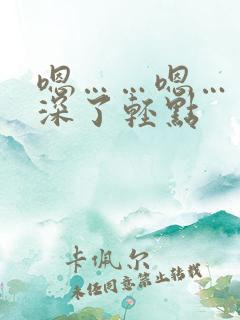 嗯……嗯…
深了轻點
卡佩尔
未经同意禁止转载